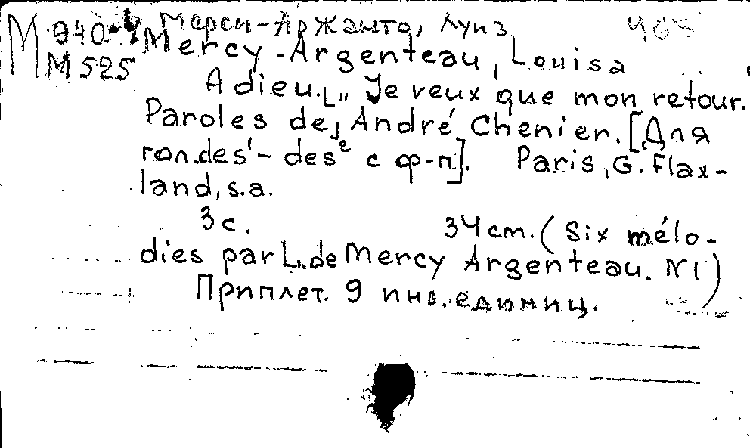 М 940-4 Мерси-Аржанто, Луиз
М 525 Mercy-Argenteau, Louisa
Adieu. „Je veux que mon retour.
Paroles de André Chenier. [Для
гол. des'-des² с ф-п]. Paris, G. Flax-
land, s.a.
3 с. 34 cm. (Six mélo-
dies par L. de Mercy Argenteau. N1)
Приплет. 9 инв. единиц.